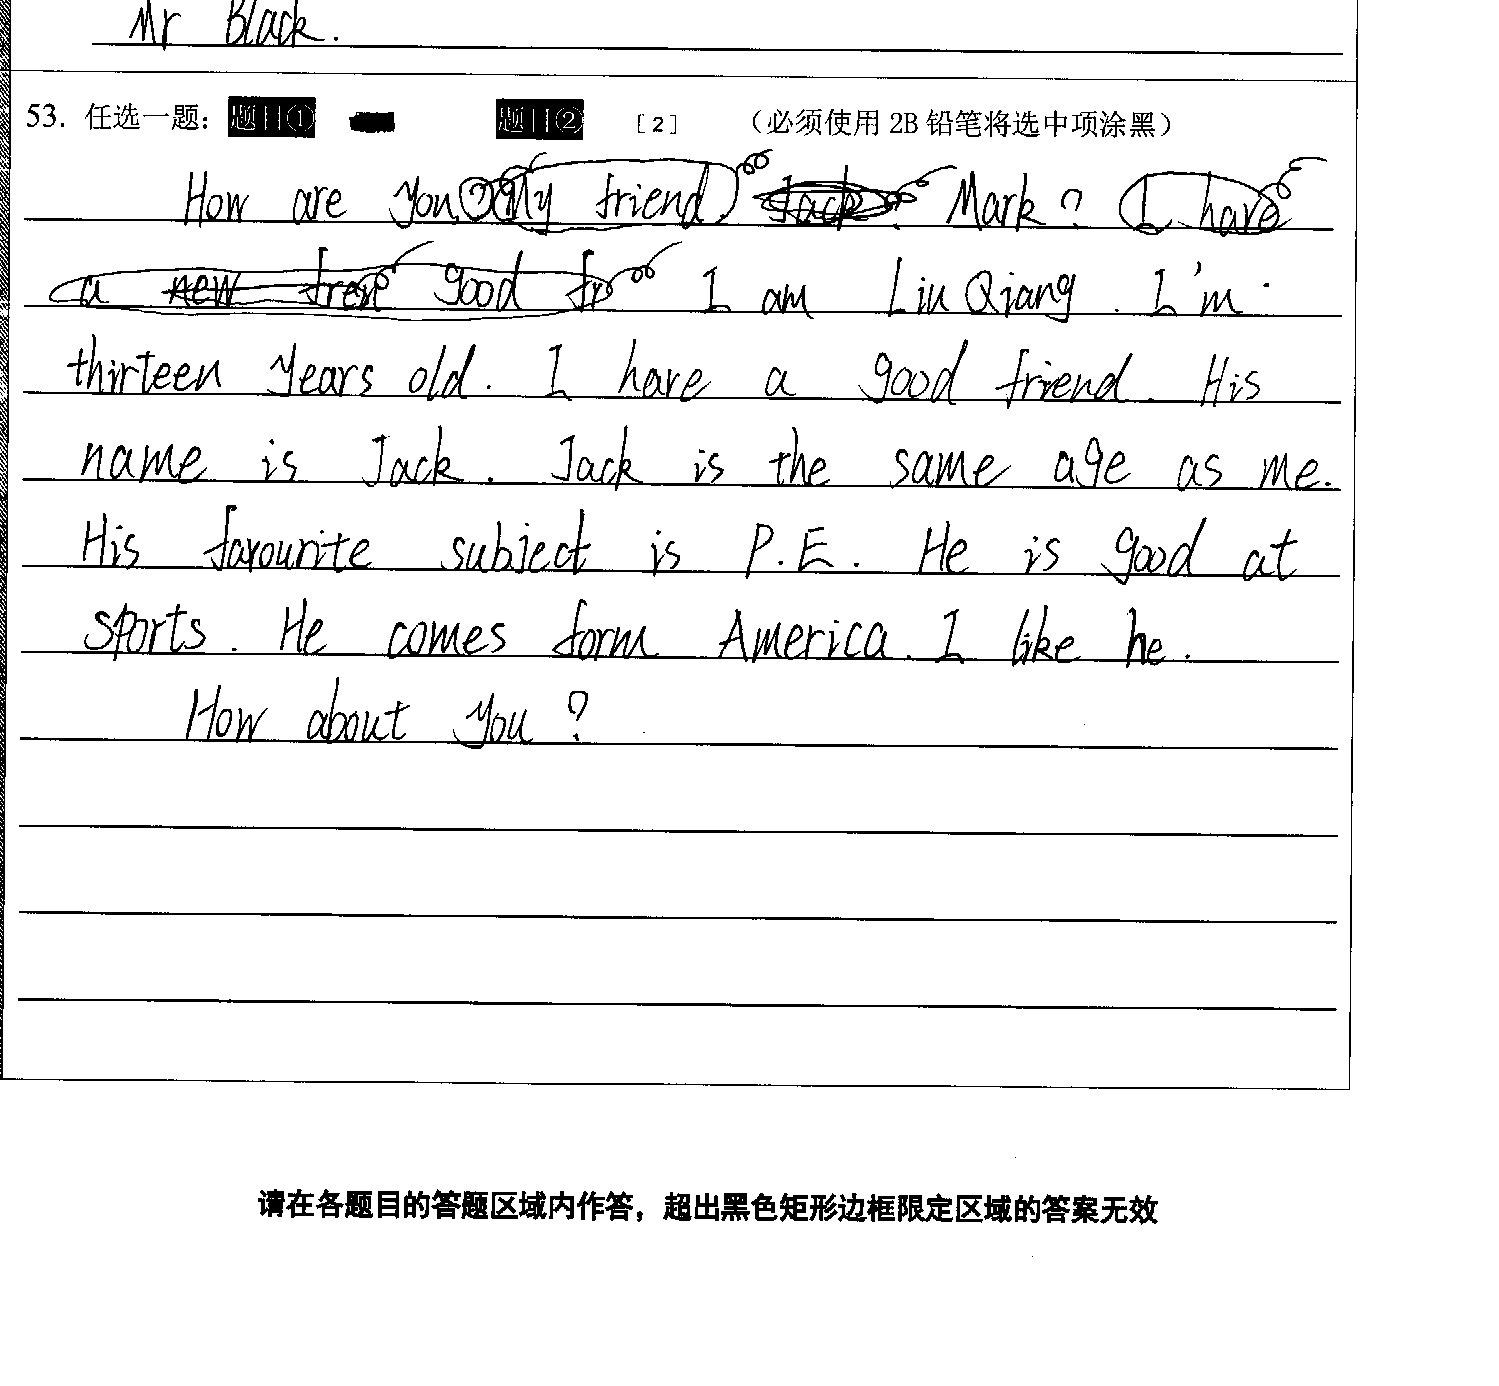 Mr Black.
53. 任选一题: 题目① 题目② [2] (必须使用 2B 铅笔将选中项涂黑)
How are you? My friend, Jack. Mark? I have
a new fren good fr I am Liu Qiang. I'm
thirteen years old. I have a good friend. His
name is Jack. Jack is the same age as me.
His favourite subject is P.E. He is good at
sports. He comes form America. I like he.
How about you?
请在各题目的答题区域内作答，超出黑色矩形边框限定区域的答案无效